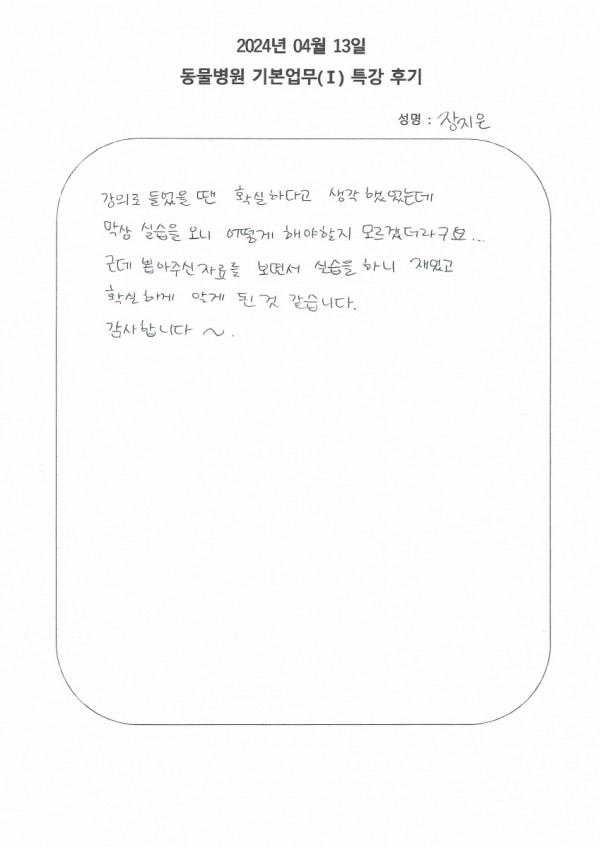 2024년 04월 13일
동물병원 기본업무(I) 특강 후기
성명 : 장지은
강의로 들었을 땐 확실하다고 생각했었는데
막상 실습을 오니 어떻게 해야할지 모르겠더라구요...
근데 뽑아주신자료를 보면서 실습을 하니 재밌고
확실하게 알게 된 것 같습니다.
감사합니다 ~.